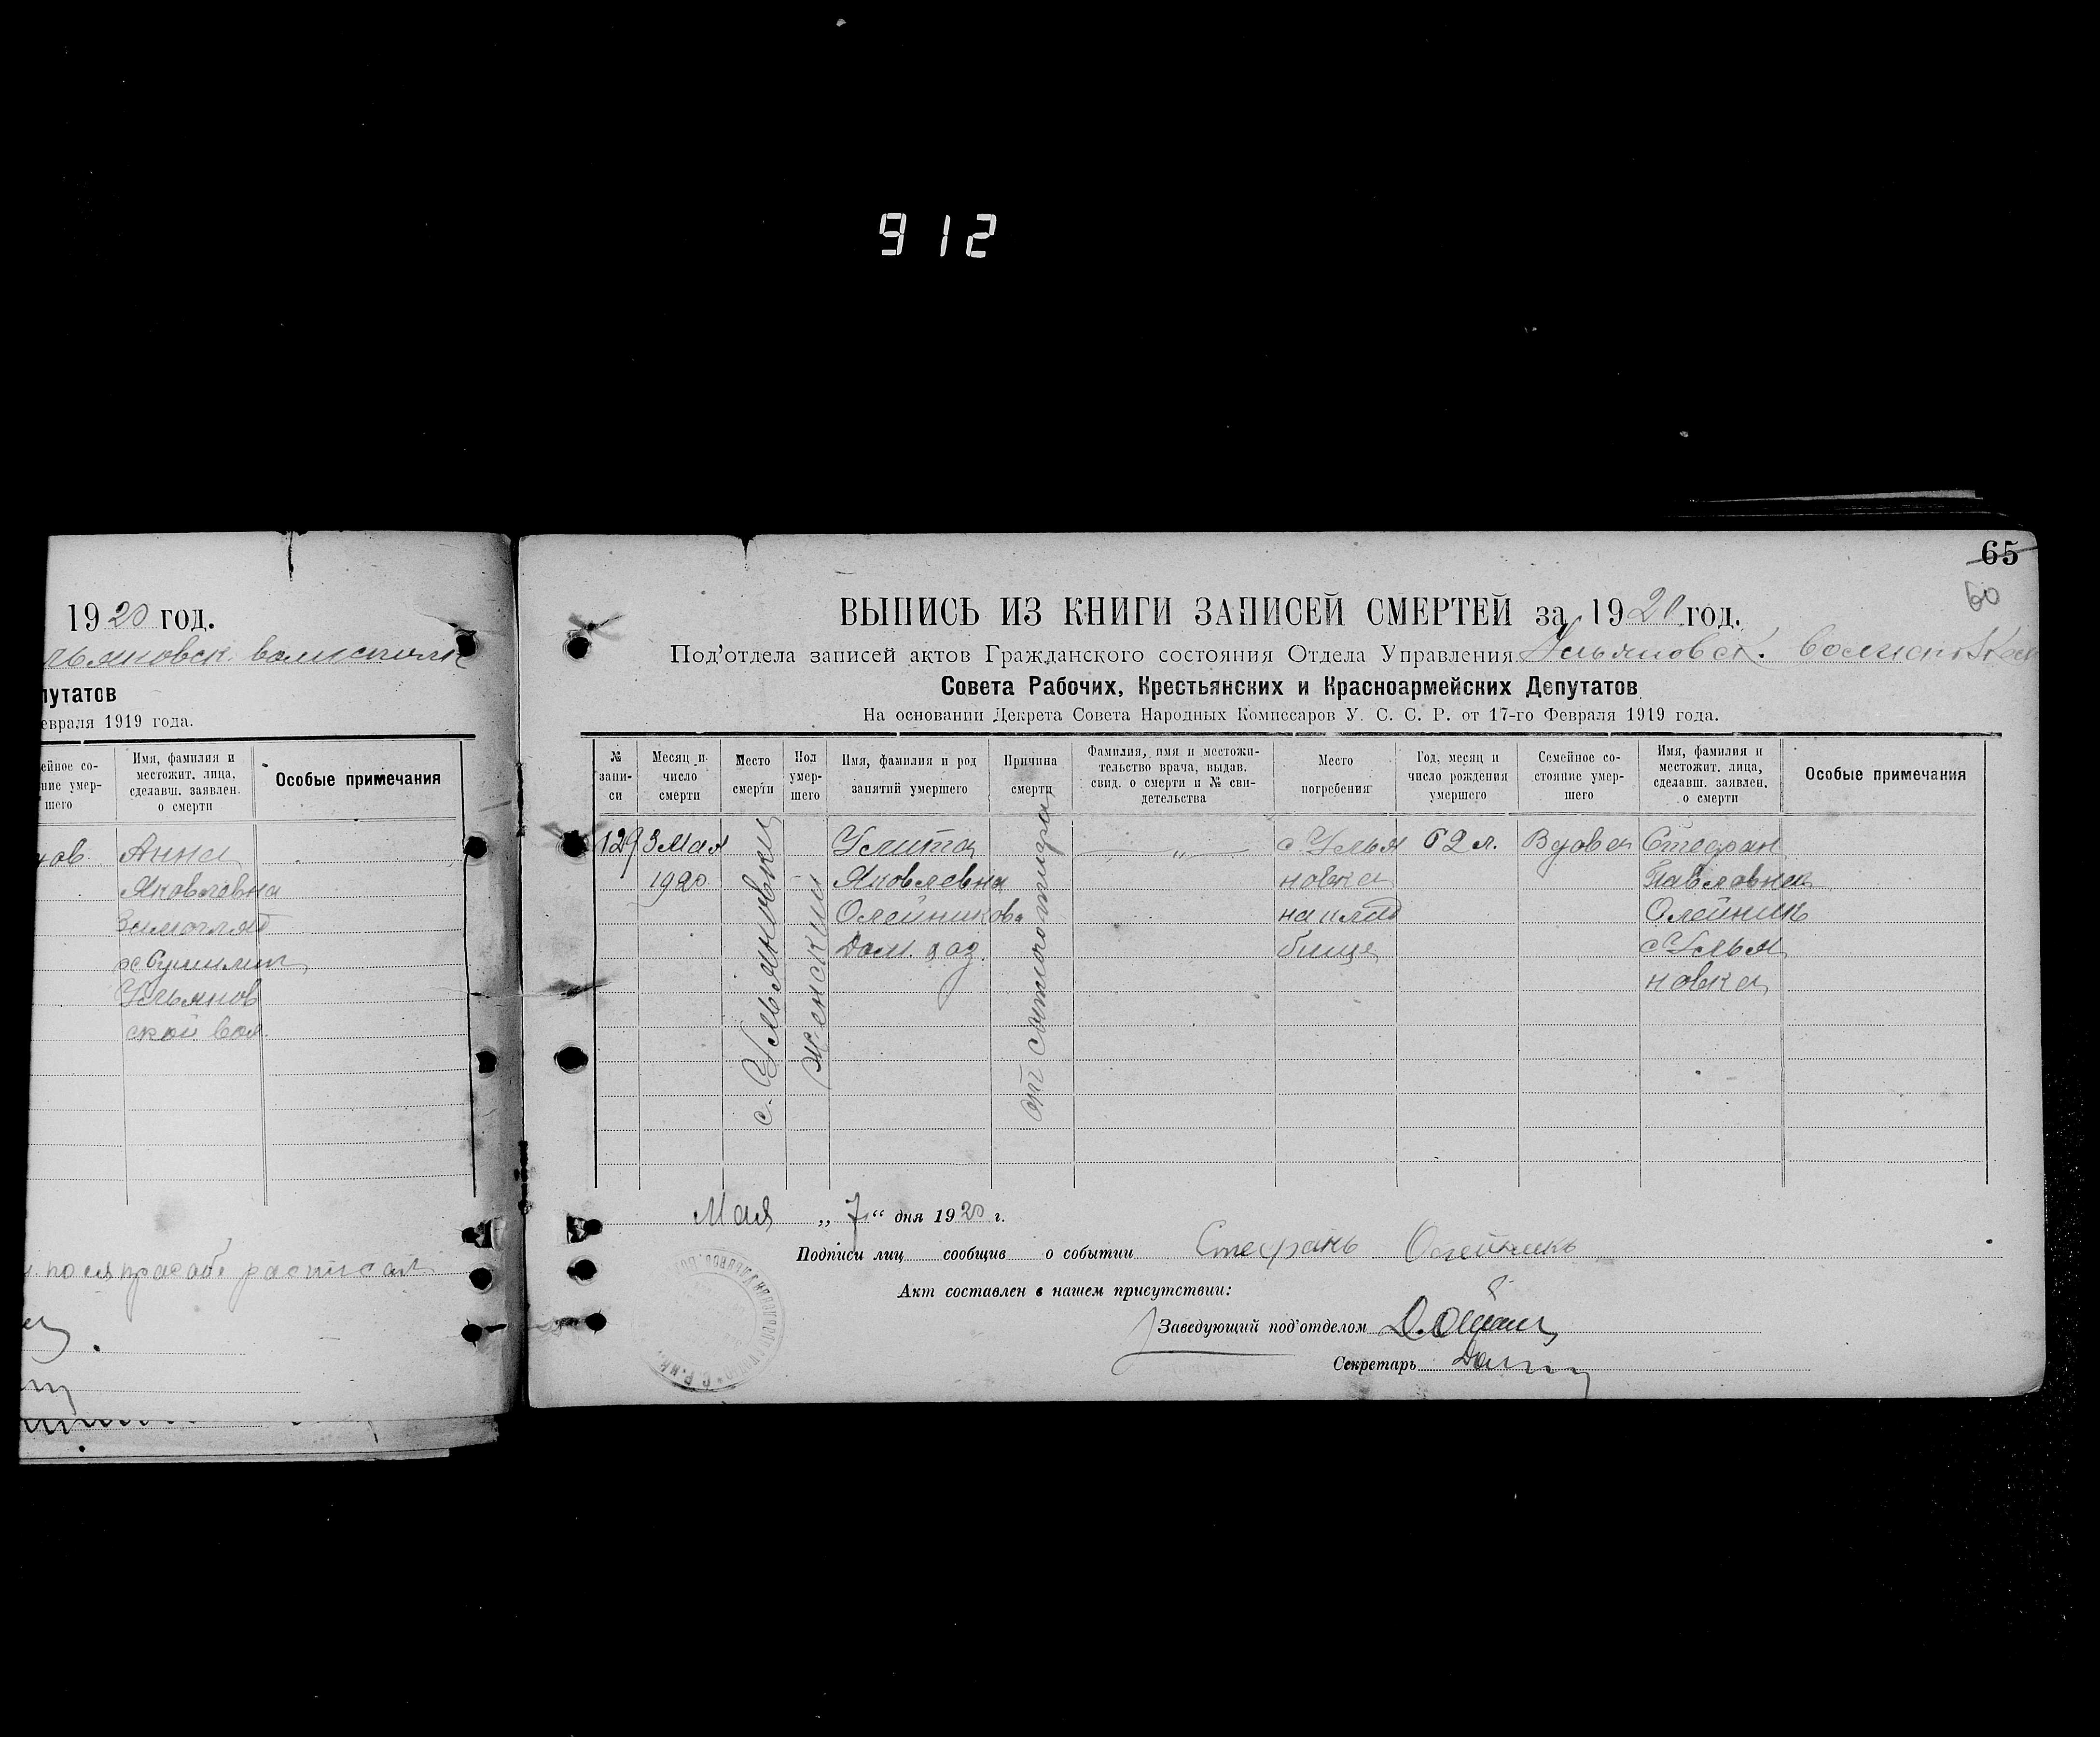 912
1920 год.
льяновск. волисполк
путатов
евраля 1919 года.
ейное со-
ние умер-
шего
Имя, фамилия и
местожит. лица,
сделавш. заявлен.
о смерти
Особые примечания
ов.
Анна
Яковлевна
Ульянов
ской вол.
65
60
ВЫПИСЬ ИЗ КНИГИ ЗАПИСЕЙ СМЕРТЕЙ за 1920 год.
Под'отдела записей актов Гражданского состояния Отдела Управления Ульяновск.
Совета Рабочих, Крестьянских и Красноармейских Депутатов
На основании Декрета Совета Народных Комиссаров У. С. С. Р. от 17-го Февраля 1919 года.
№
запи-
си
Месяц и
число
смерти
Место
смерти
Пол
умер-
шего
Имя, фамилия и род
занятий умершего
Причина
смерти
Фамилия, имя и местожи-
тельство врача, выдав.
свид. о смерти и № сви-
детельства
Место
погребения
Год, месяц и
число рождения
умершего
Семейное со-
стояние умер-
шего
Имя, фамилия и
местожит. лица,
сделавш. заявлен.
о смерти
Особые примечания
129
3 Мая
1920
с. Ульяновки
Женский
Улита
Яковлевна
Олейникова
Дом. хоз.
от
„
с Улья
новка
на клад
бище
62 л.
Вдова
Стефан
Павловича
Олейник
с Улья
новка
Мая „ 7 “ дня 1920 г.
Подписи лиц сообщив о событии Стефанъ Олейникъ
Акт составлен в нашем присутствии:
Заведующий под'отделом
Секретарь